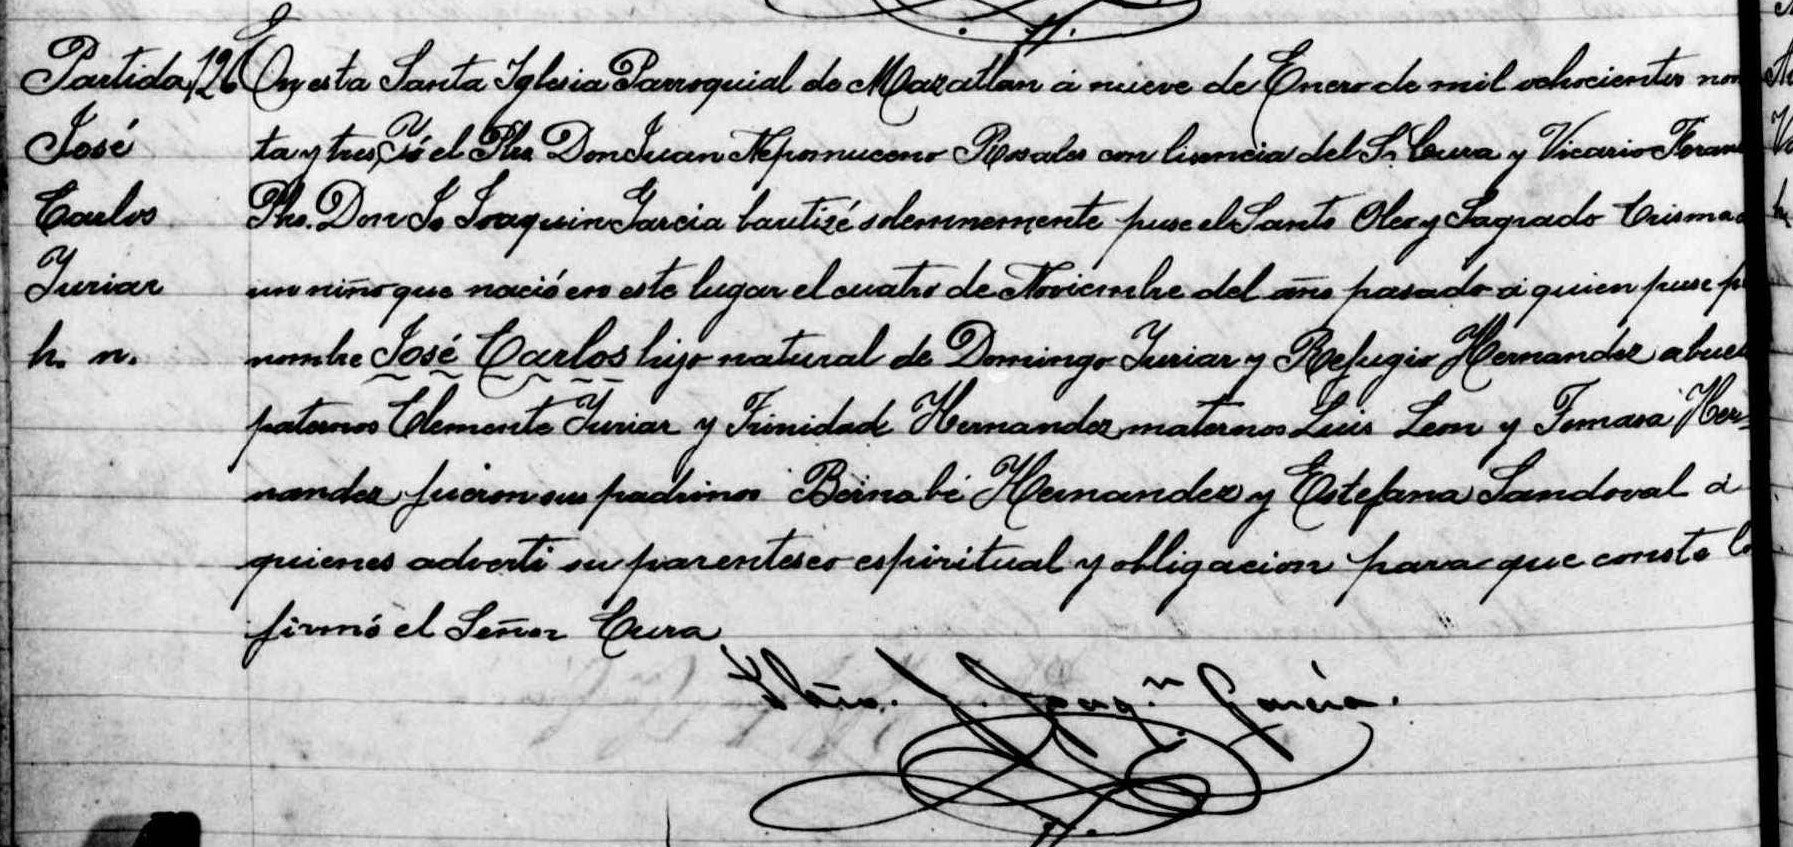 Partida 126 En esta Santa Iglesia Parroquial de Mazatlan á nueve de Enero de mil ochocientos non
José ta y tres, Yó el Pbro. Don Juan Nepomuceno Rosales con lisencia del Sr. Cura y Vicario Foran
Carlos Pbro. Don Jo Joaquin Garcia bautizé solemnemente puse el Santo Oleo y Sagrado Crisma a
Yuriar un niño que nació en este lugar el cuatro de Noviembre del año pasado á quien puse p
h. n. nombre José Carlos hijo natural de Domingo Yuriar y Refugio Hernandez abuel
paternos Clemente Yuriar y Trinidad Hernandez maternos Luis Leon y Tomasa Her-
nandez fueron sus padrinos Bernabé Hernandez y Estefana Sandoval á
quienes adverti su parentesco espiritual y obligacion para que conste lo
firmó el Señor Cura
Pbro. J. Joaqn. García.